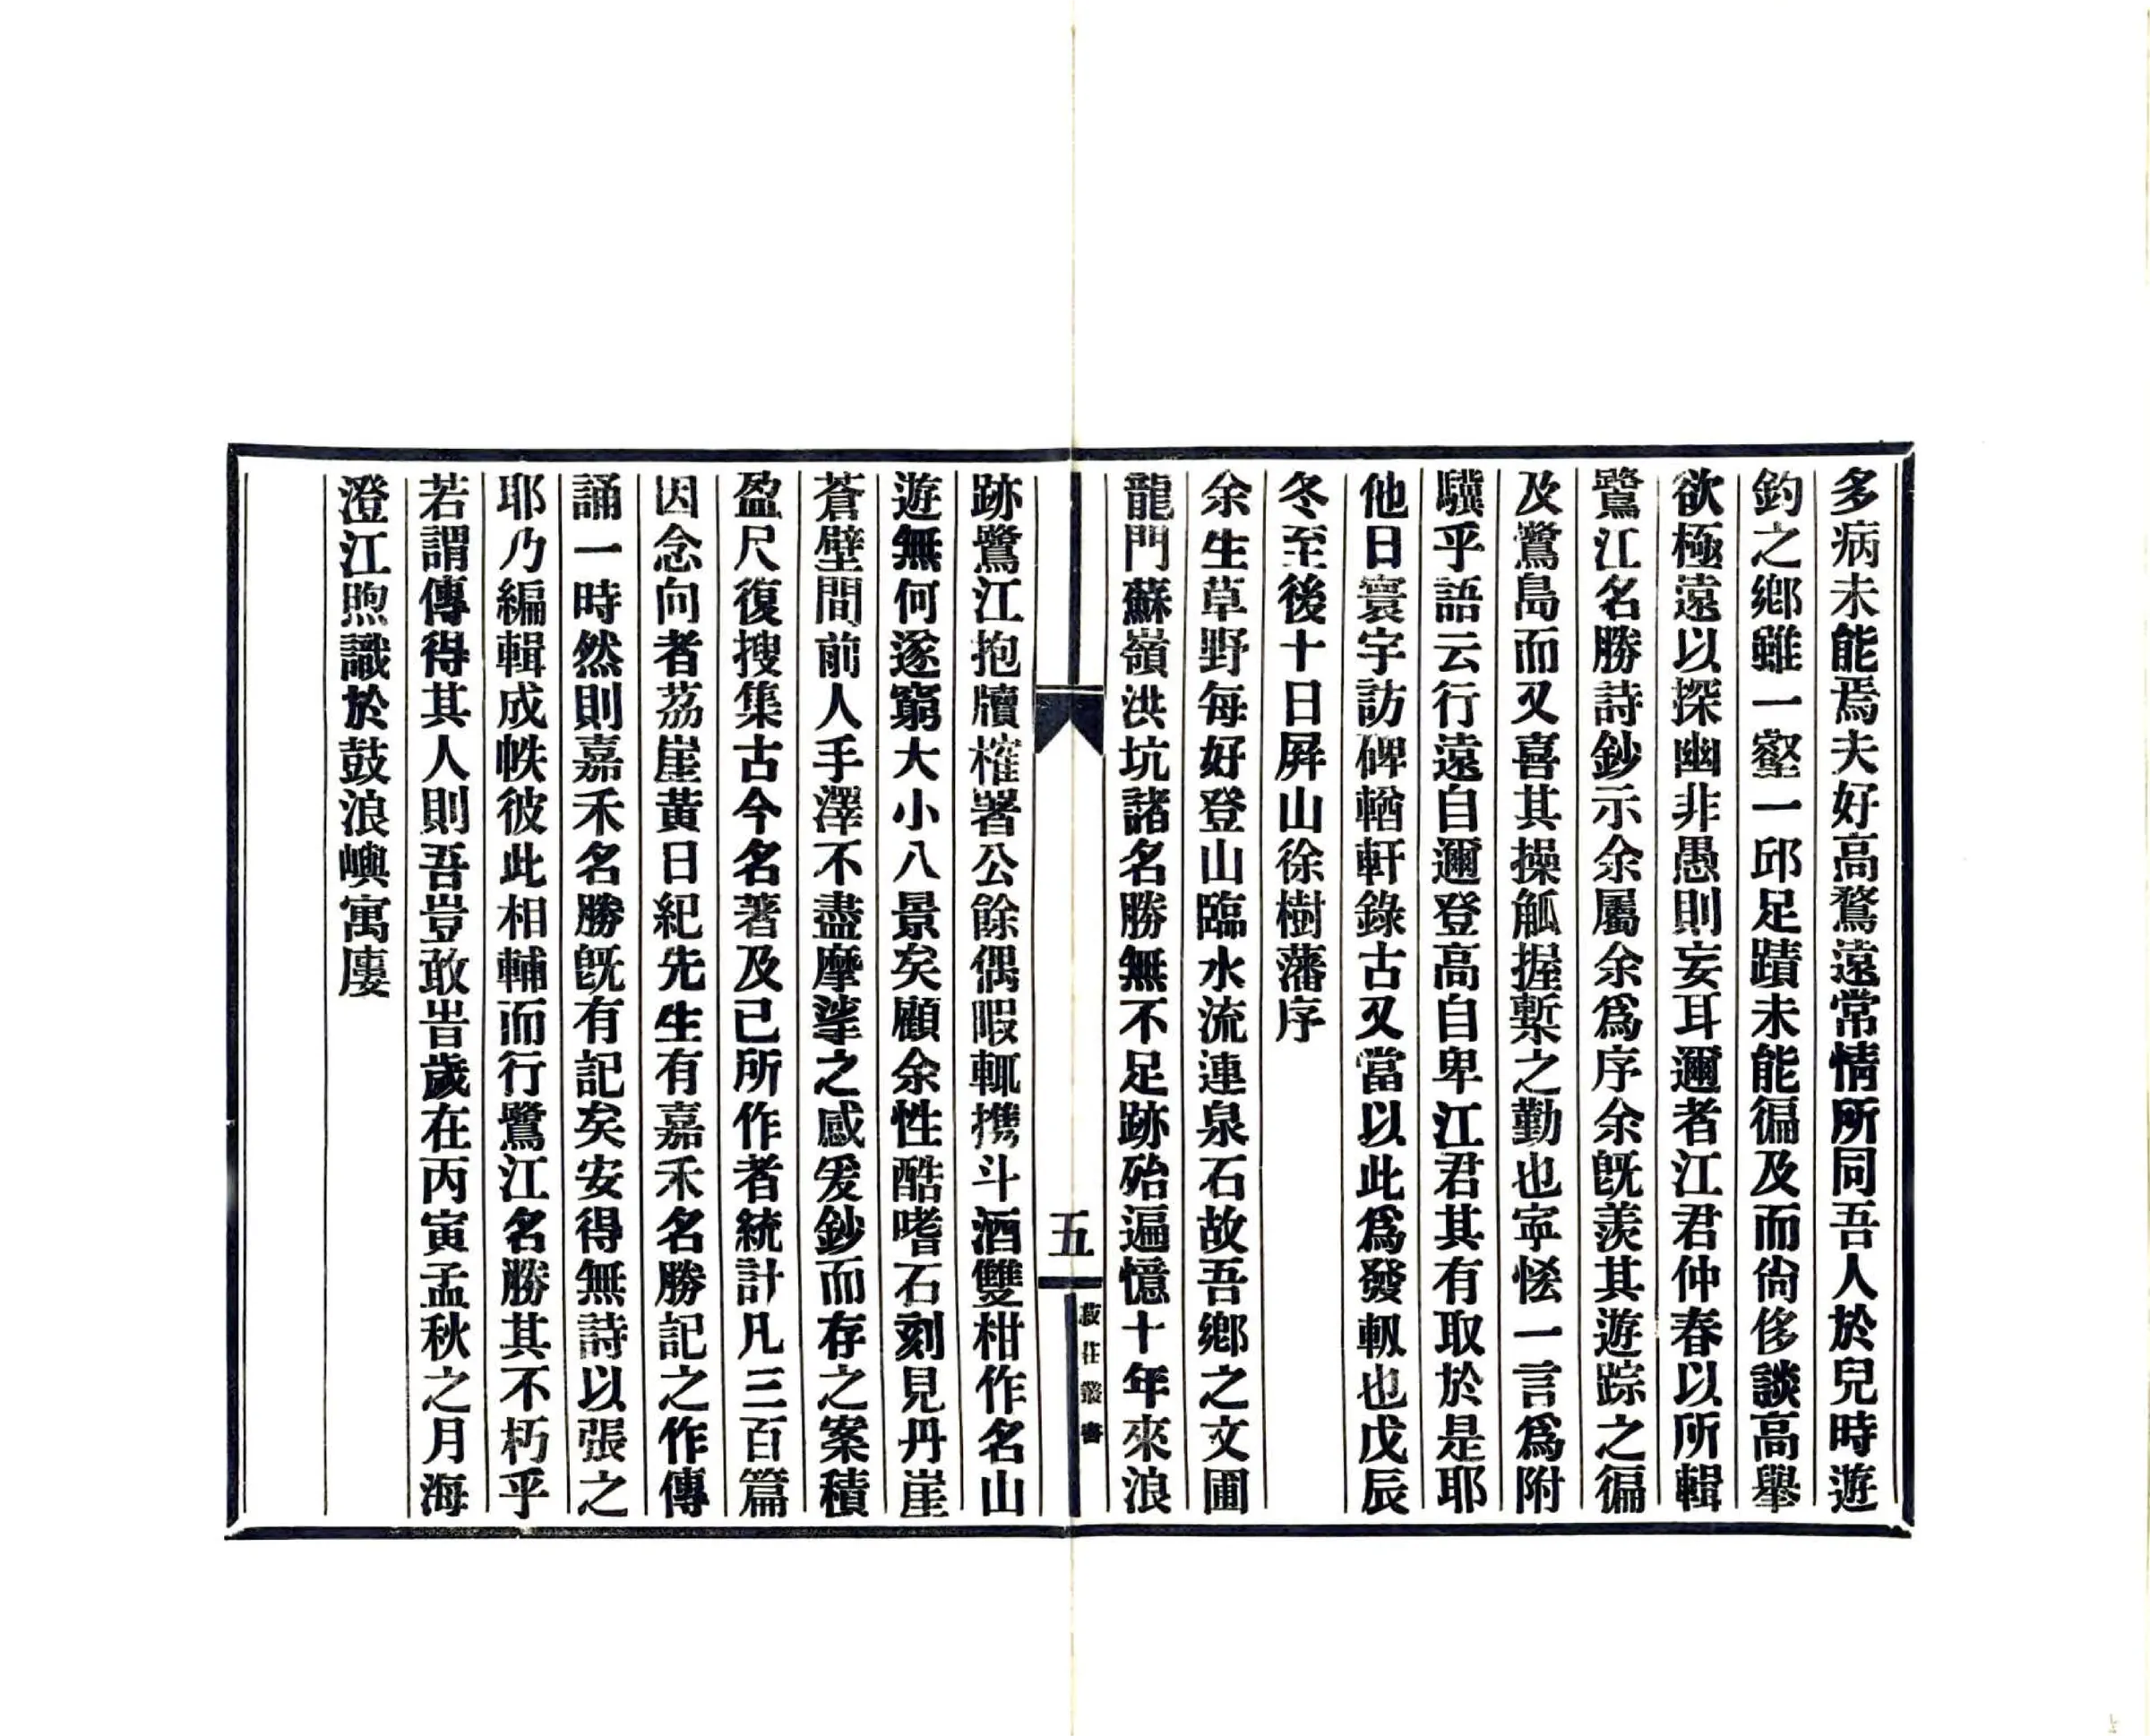 多病未能焉夫好高鶩遠常情所同吾人於兒時遊
釣之鄉雖一壑一邱足蹟未能徧及而尙侈談高舉
欲極遠以探幽非愚則妄耳邇者江君仲春以所輯
鷺江名勝詩鈔示余屬余爲序余旣羨其遊踪之徧
及鷺島而又喜其操觚握槧之勤也寧恡一言爲附
驥乎語云行遠自邇登高自卑江君其有取於是耶
他日寰宇訪碑輶軒錄古又當以此爲發軔也戊辰
冬至後十日屛山徐樹藩序
余生草野每好登山臨水流連泉石故吾鄉之文圃
龍門蘇嶺洪坑諸名勝無不足跡殆遍憶十年來浪
五
菽莊叢書
跡鷺江抱牘榷署公餘偶暇輒携斗酒雙柑作名山
遊無何遂窮大小八景矣顧余性酷嗜石刻見丹崖
蒼壁間前人手澤不盡摩挲之感爰鈔而存之案積
盈尺復搜集古今名著及己所作者統計凡三百篇
因念向者荔崖黃日紀先生有嘉禾名勝記之作傳
誦一時然則嘉禾名勝旣有記矣安得無詩以張之
耶乃編輯成帙彼此相輔而行鷺江名勝其不朽乎
若謂傳得其人則吾豈敢旹歲在丙寅孟秋之月海
澄江煦識於鼓浪嶼寓廔